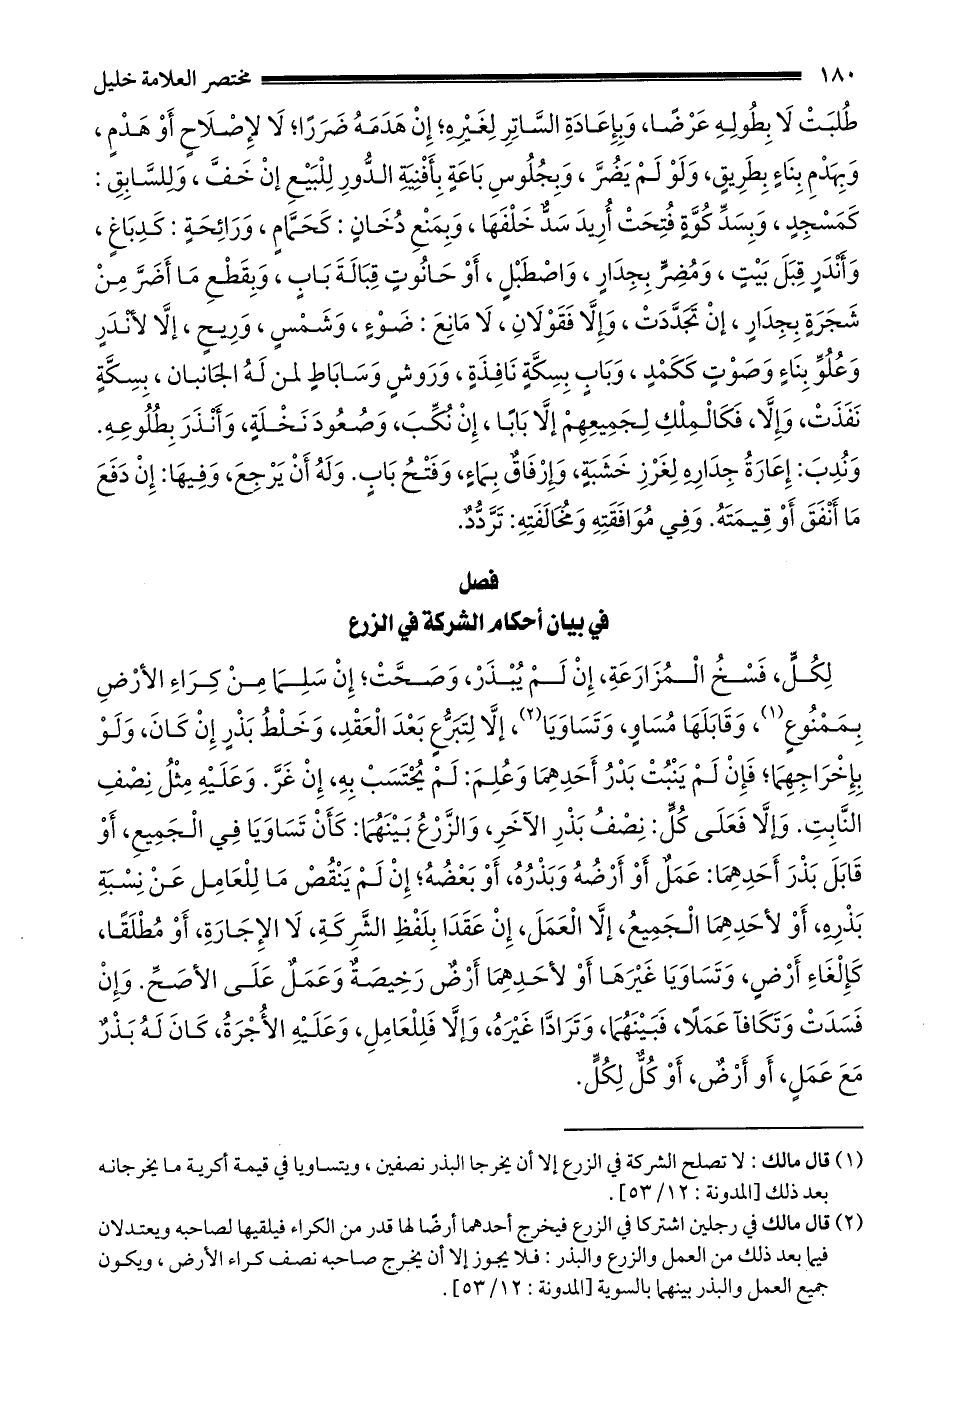 ١٨٠ مختصر العلامة خليل
طُلِبَتْ لَا بِطُولِهِ عَرْضًا، وَبِإِعَادَةِ السَّاتِرِ لِغَيْرِهِ؛ إِنْ هَدَمَهُ ضَرَرًا؛ لَا لِإِصْلَاحٍ أَوْ هَدْمٍ ،
وَبِهَدْمِ بِنَاءٍ بِطَرِيقٍ، وَلَوْ لَمْ يَضُرَّ ، وَبِجُلُوسِ بَاعَةٍ بِأَفْنِيَةِ الدُّورِ لِلْبَيْعِ إِنْ خَفَّ ، وَلِلسَّابِقِ :
كَمَسْجِدٍ ، وَبِسَدِّ كُوَّةٍ فُتِحَتْ أُرِيدَ سَدٌّ خَلْفَهَا ، وَبِمَنْعِ دُخَانٍ : كَحَمَّامٍ ، وَرَائِحَةٍ : كَدِبَاغٍ ،
وَأَنْدَرٍ قِبَلَ بَيْتٍ ، وَمُضِرٍّ بِجِدَارٍ ، وَاصْطَبْلٍ ، أَوْ حَانُوتٍ قِبَالَةَ بَابٍ ، وَبِقَطْعِ مَا أَضَرَّ مِنْ
شَجَرَةٍ بِجِدَارٍ ، إِنْ تَجَدَّدَتْ ، وَإِلَّا فَقَوْلَانِ ، لَا مَانِعَ : ضَوْءٍ ، وَشَمْسٍ ، وَرِيحٍ ، إِلَّا لأَنْدَرٍ
وَعُلُوِّ بِنَاءٍ وَصَوْتٍ كَكَمْدٍ ، وَبَابٍ بِسِكَّةٍ نَافِذَةٍ ، وَرَوشنٍ وَسَابَاطٍ لمن لَهُ الجَانبان ، بِسِكَّةٍ
نَفَذَتْ، وَإِلَّا، فَكَالْمِلْكِ لِجَمِيعِهِمْ إِلَّا بَابًا ، إِنْ نُكِّبَ، وَصُعُودَ نَخْلَةٍ، وَأَنْذَرَ بِطُلُوعِهِ.
وَنُدِبَ: إِعَارَةُ جِدَارِهِ لِغَرْزِ خَشَبَةٍ، وَإِرْفَاقٌ بِمَاءٍ، وَفَتْحُ بَابٍ. وَلَهُ أَنْ يَرْجِعَ، وَفِيهَا: إِنْ دَفَعَ
مَا أَنْفَقَ أَوْ قِيمَتَهُ. وَفِي مُوَافَقَتِهِ وَمُخَالَفَتِهِ: تَرَدُّدٌ.
فصل
في بيان أحكام الشركة في الزرع
لِكُلٍّ، فَسْخُ الْمُزَارَعَةِ، إِنْ لَمْ يُبْذَرْ، وَصَحَّتْ؛ إِنْ سَلِمَا مِنْ كِرَاءِ الأَرْضِ
بِمَمْنُوعٍ(١)، وَقَابَلَهَا مُسَاوٍ، وَتَسَاوَيَا(٢)، إِلَّا لِتَبَرُّعٍ بَعْدَ الْعَقْدِ، وَخَلْطُ بَذْرٍ إِنْ كَانَ، وَلَوْ
بِإِخْرَاجِهِمَا؛ فَإِنْ لَمْ يَنْبُتْ بَذْرُ أَحَدِهِمَا وَعُلِمَ: لَمْ يُحْتَسَبْ بِهِ، إِنْ غَرَّ. وَعَلَيْهِ مِثْلُ نِصْفِ
النَّابِتِ. وَإِلَّا فَعَلَى كُلٍّ: نِصْفُ بَذْرِ الآخَرِ، وَالزَّرْعُ بَيْنَهُمَا: كَأَنْ تَسَاوَيَا فِي الْجَمِيعِ، أَوْ
قَابَلَ بَذْرَ أَحَدِهِمَا: عَمَلٌ أَوْ أَرْضُهُ وَبَذْرُهُ، أَوْ بَعْضُهُ؛ إِنْ لَمْ يَنْقُصْ مَا لِلْعَامِلِ عَنْ نِسْبَةِ
بَذْرِهِ، أَوْ لأَحَدِهِمَا الْجَمِيعُ، إِلَّا الْعَمَلَ، إِنْ عَقَدَا بِلَفْظِ الشَّرِكَةِ، لَا الإِجَارَةِ، أَوْ مُطْلَقًا،
كَإِلْغَاءِ أَرْضٍ، وَتَسَاوَيَا غَيْرَهَا أَوْ لأَحَدِهِمَا أَرْضٌ رَخِيصَةٌ وَعَمَلٌ عَلَى الأَصَحِّ. وَإِنْ
فَسَدَتْ وَتَكَافَآ عَمَلًا، فَبَيْنَهُمَا، وَتَرَادَّا غَيْرَهُ، وَإِلَّا فَلِلْعَامِلِ، وَعَلَيْهِ الأُجْرَةُ، كَانَ لَهُ بَذْرٌ
مَعَ عَمَلٍ، أَو أَرْضٌ، أَوْ كُلٌّ لِكُلٍّ.
(١) قال مالك : لا تصلح الشركة في الزرع إلا أن يخرجا البذر نصفين ، ويتساويا في قيمة أكرية ما يخرجانه
بعد ذلك [المدونة : ١٢/ ٥٣] .
(٢) قال مالك في رجلين اشتركا في الزرع فيخرج أحدهما أرضًا لها قدر من الكراء فيلقيها لصاحبه ويعتدلان
فيما بعد ذلك من العمل والزرع والبذر : فلا يجوز إلا أن يخرج صاحبه نصف كراء الأرض ، ويكون
جميع العمل والبذر بينهما بالسوية [المدونة : ١٢/ ٥٣] .